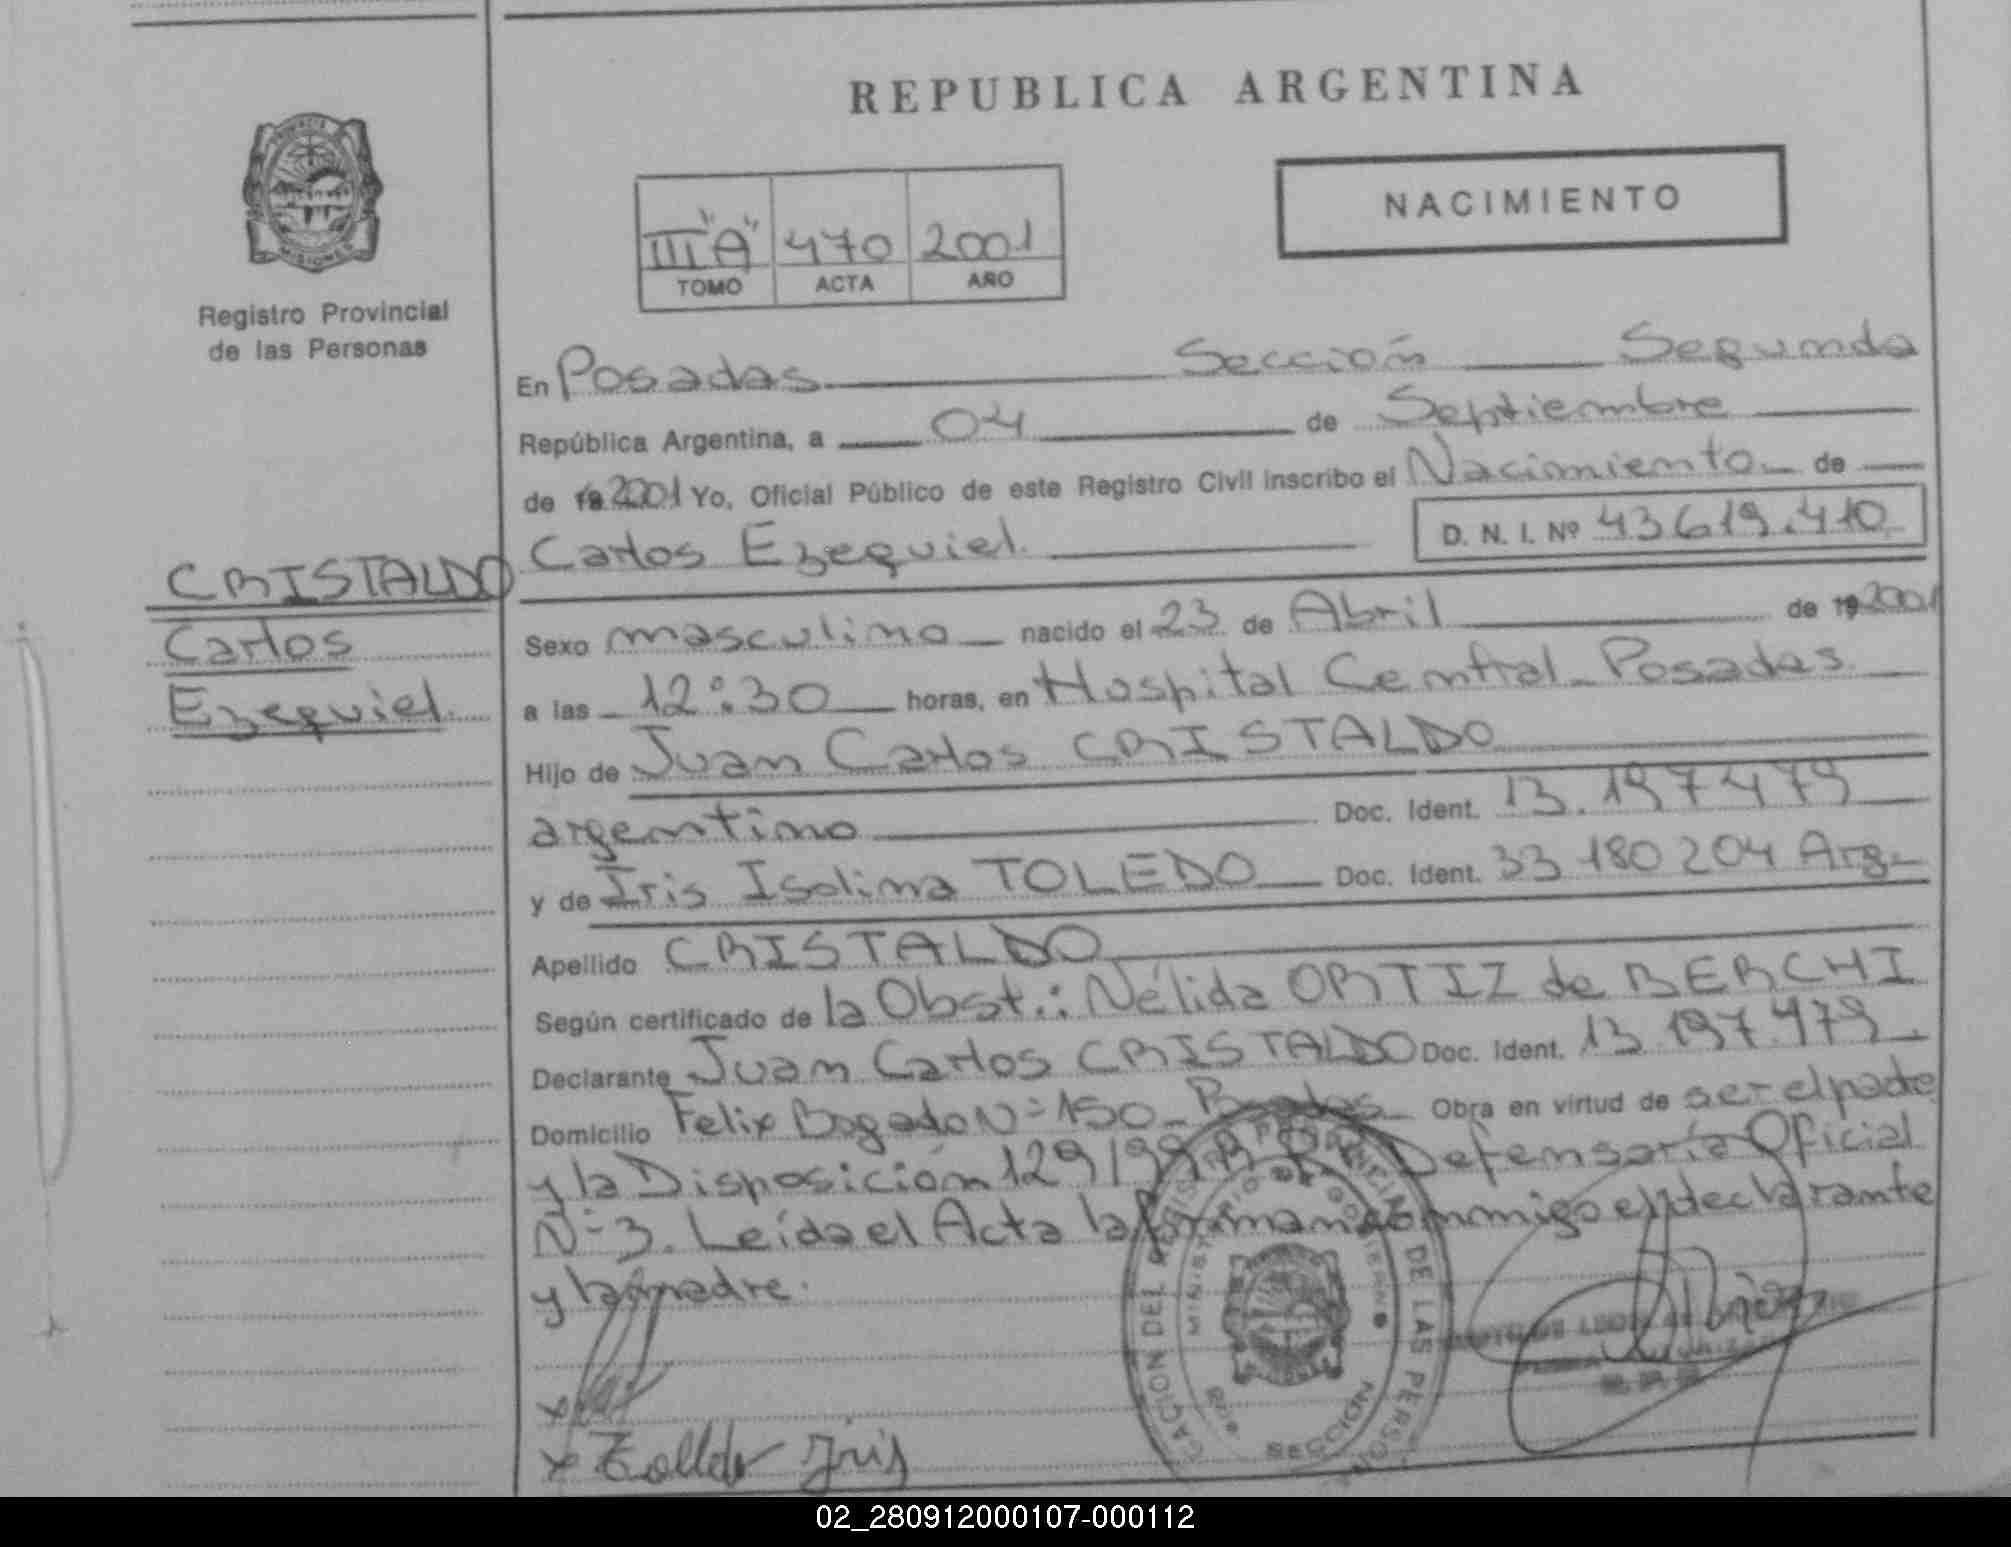 REPUBLICA ARGENTINA
NACIMIENTO
PROVINCIA
MISIONES
Registro Provincial
de las Personas
III "A" 470 2001
TOMO ACTA AÑO
En Posadas Sección Segunda
República Argentina, a 04 de Septiembre
de 19 2001 Yo, Oficial Público de este Registro Civil inscribo el Nacimiento de
Carlos Ezequiel. D. N. I. Nº 43619.410
CRISTALDO
Carlos
Ezequiel.
Sexo masculino nacido el 23 de Abril de 19 2001
a las 12:30 horas, en Hospital Central - Posadas.
Hijo de Juan Carlos CRISTALDO
argentino Doc. Ident. 13.197479
y de Iris Isolina TOLEDO Doc. Ident. 33 180 204 Arg-
Apellido CRISTALDO
Según certificado de la Obst.: Nélida ORTIZ de BERCHI
Declarante Juan Carlos CRISTALDO Doc. Ident. 13.197.479.
Domicilio Felix Bogado N=150- Posadas- Obra en virtud de ser el padre
y la Disposición 129/99 Defensoría Oficial
N=3. Leída el Acta la firman conmigo el declarante
y la madre.
MINISTERIO DE GOBIERNO
DE LAS PERSON
SECCION
x Tolledo Iris
02_280912000107-000112